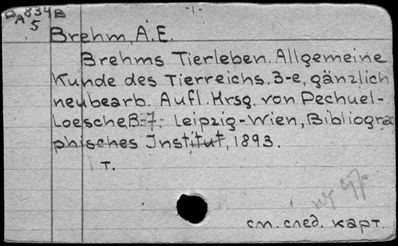 -1-
B 834 B
A 5
Brehm, A.E.
Brehms Tierleben. Allgemeine
Kunde des Tierreichs. 3-e, gänzlich
neubearb. Aufl. Hrsg. von Pechuel-
Loesche, B-7. Leipzig-Wien, Bibliogra
phisches Institut, 1893.
1 т.
см. след. карт.